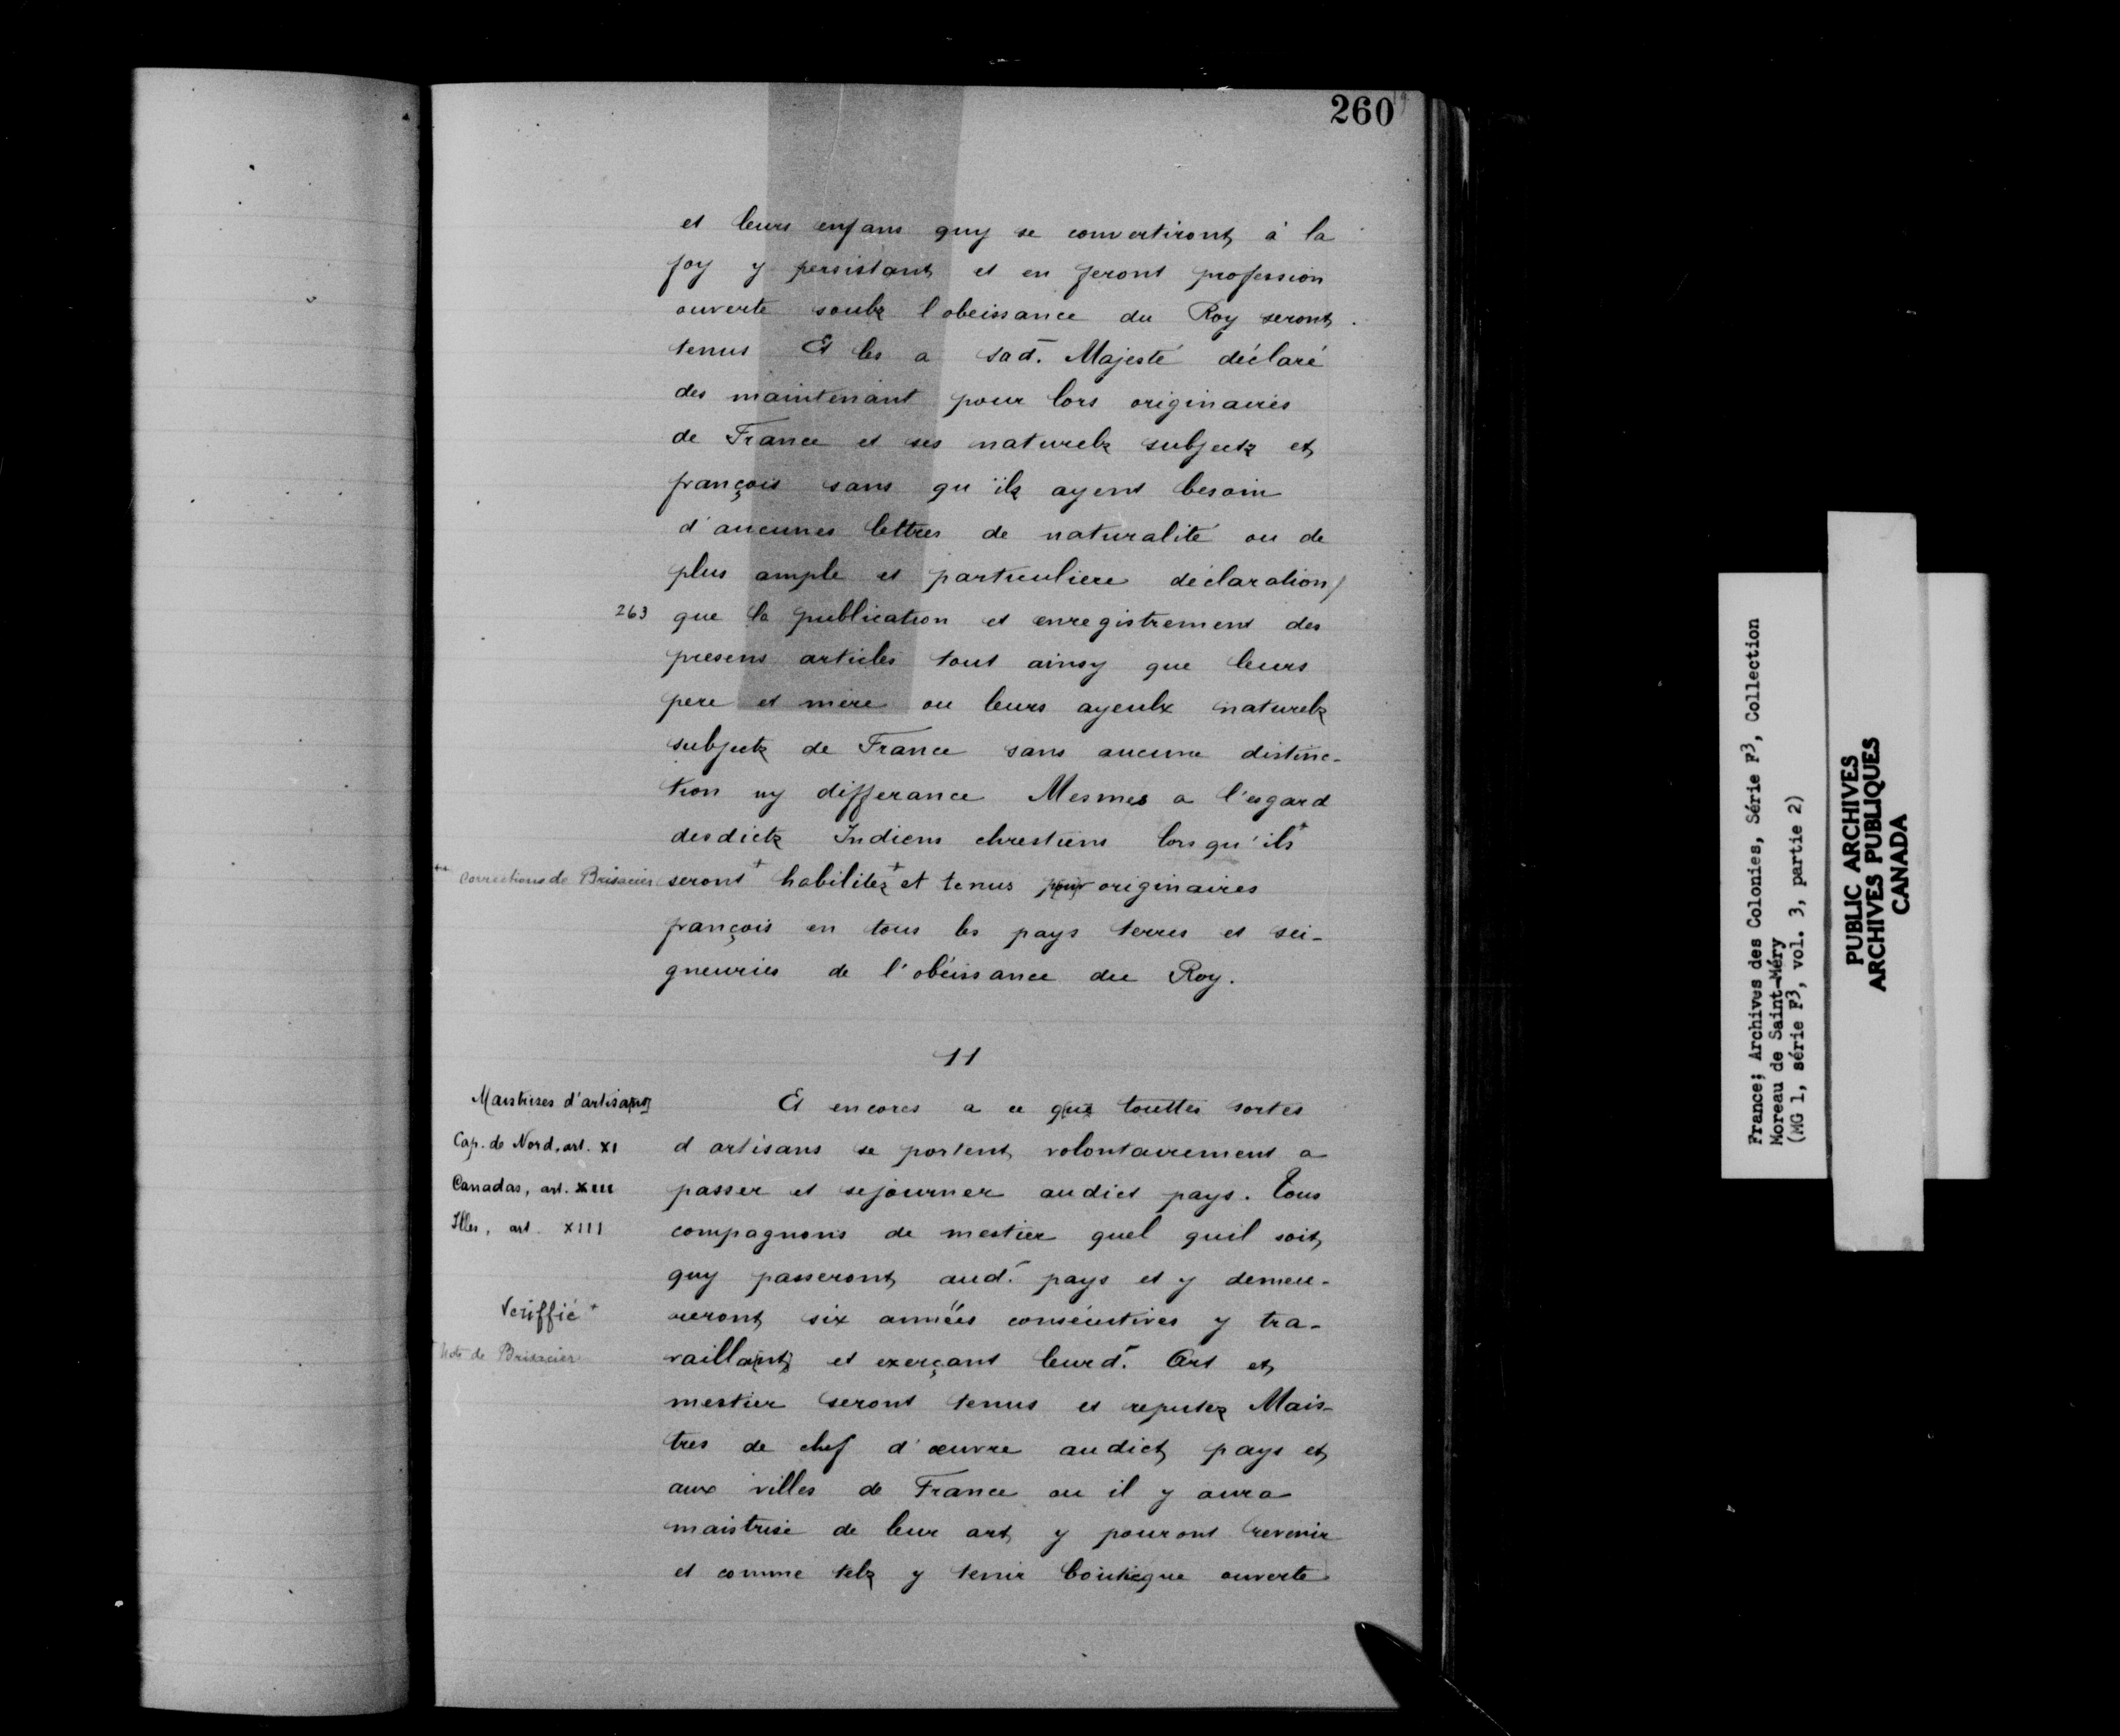 260
et leurs enfans quy se convertiront à la
foy y persistant et en feront profession
ouverte soubz l'obeissance du Roy seront
tenus Et les a sad. Majesté déclaré
des maintenant pour lors originaires
de France et ses naturelz subjectz et
françois sans qu'ilz ayent besoin
d'aucunes lettres de naturalité ou de
plus ample et particuliere déclaration/
263 que la publication et enregistrement des
presens articles tout ainsy que leurs
pere et mere ou leurs ayeulx naturelz
subjectz de France sans aucune distinc-
tion ny differance Mesmes a l'esgard
desdictz Indiens chrestiens lorsqu'ils+
++ corrections de Brisacier
seront+ habilitez+ et tenus pour originaires
françois en tous les pays terres et sei-
gneuries de l'obéissance du Roy.
11
Maistrises d'artisans
Cap. de Nord, art. XI
Canadas, art. XIII
Illes, art. XIII
Veriffié +
+ Note de Brisacier
Et encores a ce que touttes sortes
d artisans se portent volontairement a
passer et sejourner audict pays. Tous
compagnons de mestier quel quil soit
quy passeront aud. pays et y demeu-
reront six années consécutives y tra-
vaillant et exerçant leurd. Art et
mestier seront tenus et reputez Mais-
tres de chef d'œuvre audict pays et
aux villes de France ou il y aura
maistrise de leur art y pouront revenir
et comme telz y tenir boutique ouverte
France; Archives des Colonies, Série F3, Collection
Moreau de Saint-Méry
(MG 1, série F3, vol. 3, partie 2)
PUBLIC ARCHIVES
ARCHIVES PUBLIQUES
CANADA